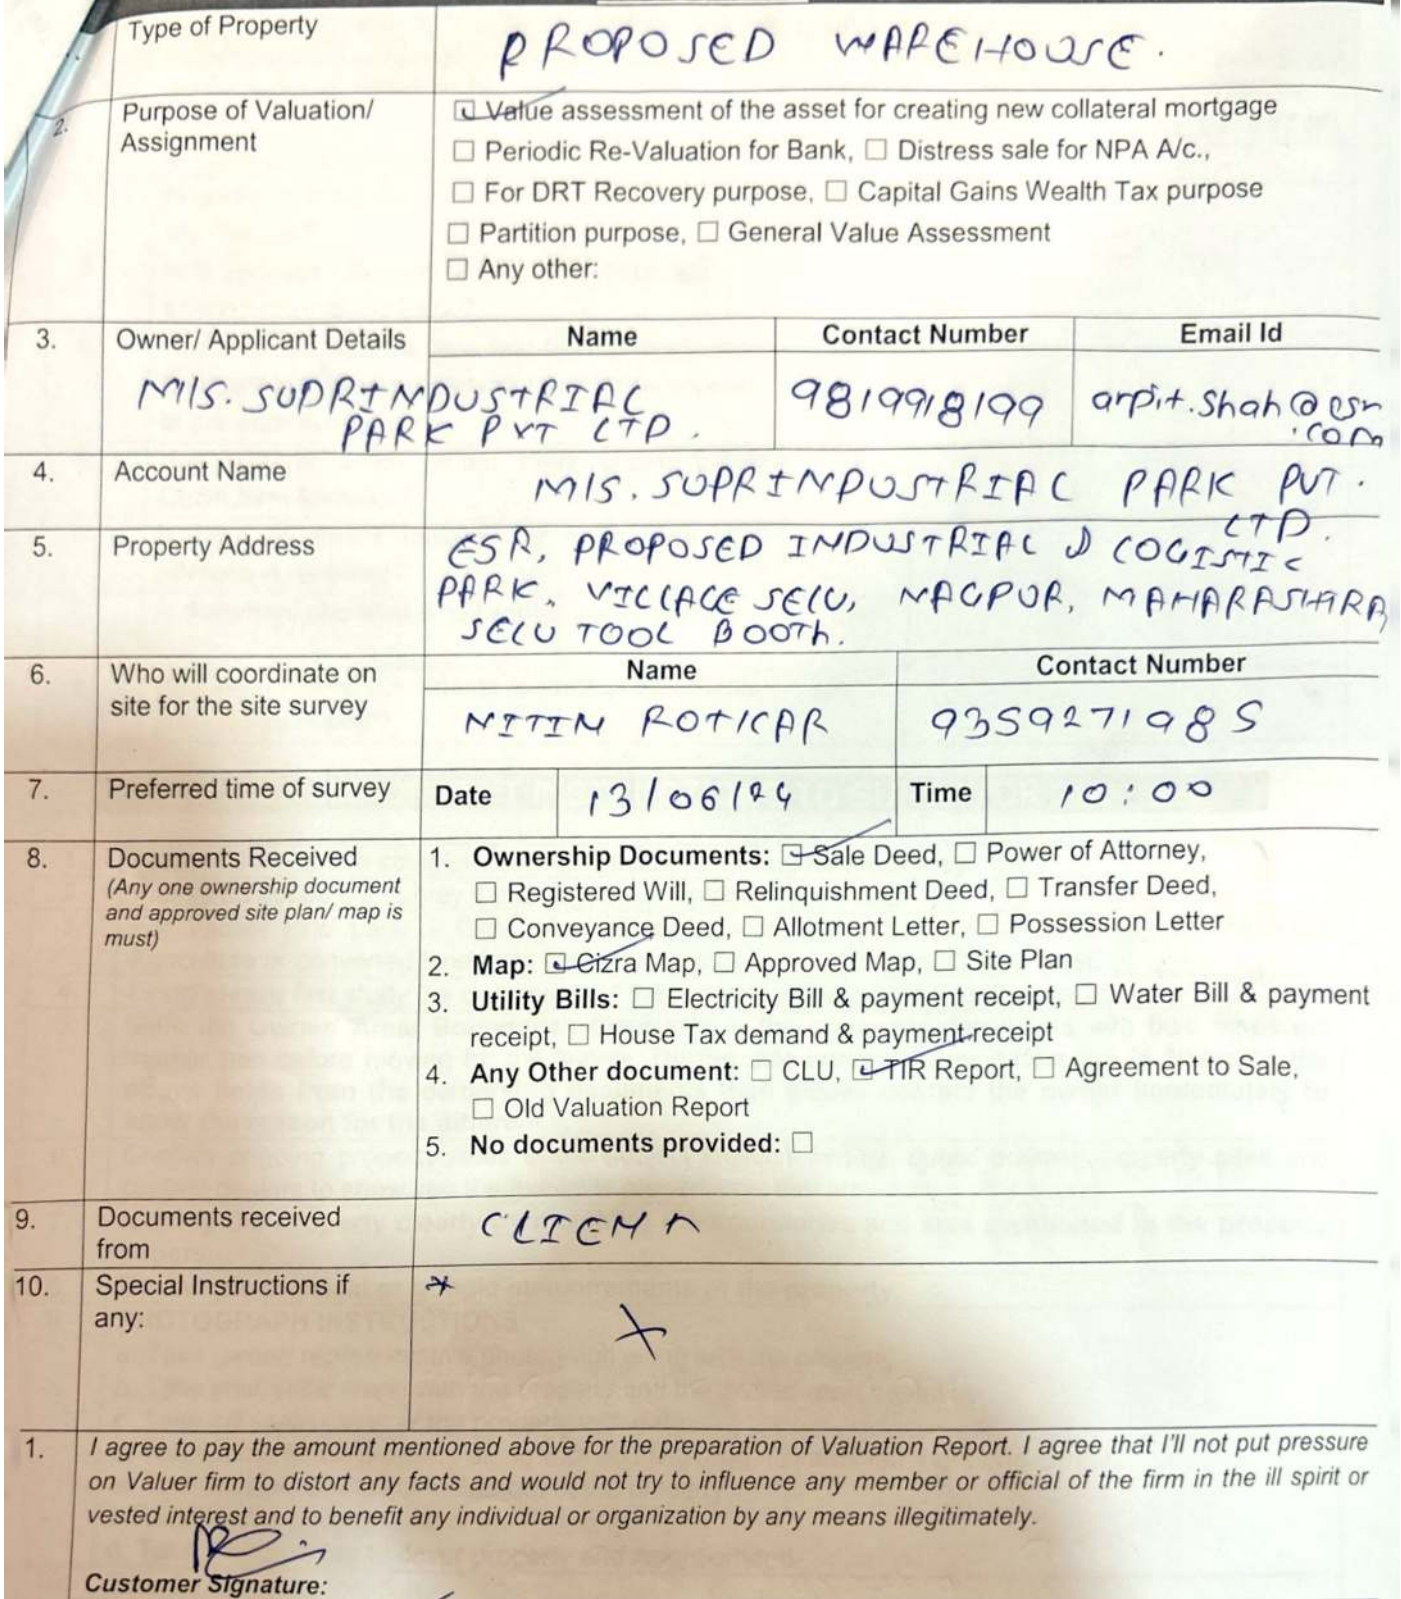 Type of Property PROPOSED WAREHOUSE.
2. Purpose of Valuation/ Assignment
☑ Value assessment of the asset for creating new collateral mortgage
☐ Periodic Re-Valuation for Bank, ☐ Distress sale for NPA A/c.,
☐ For DRT Recovery purpose, ☐ Capital Gains Wealth Tax purpose
☐ Partition purpose, ☐ General Value Assessment
☐ Any other:
3. Owner/ Applicant Details Name Contact Number Email Id
M/S. SUPRINDUSTRIAL 9819918199 arpit.shah@esr
PARK PVT LTD. .com
4. Account Name M/S. SUPRINDUSTRIAL PARK PVT.
LTD.
5. Property Address ESR, PROPOSED INDUSTRIAL & LOGISTIC
PARK, VILLAGE SELU, NAGPUR, MAHARASHTRA
SELU TOOL BOOTH.
6. Who will coordinate on Name Contact Number
site for the site survey NITIN ROTKAR 9359271985
7. Preferred time of survey Date 13/06/24 Time 10:00
8. Documents Received 1. Ownership Documents: ☑ Sale Deed, ☐ Power of Attorney,
(Any one ownership document ☐ Registered Will, ☐ Relinquishment Deed, ☐ Transfer Deed,
and approved site plan/ map is ☐ Conveyance Deed, ☐ Allotment Letter, ☐ Possession Letter
must) 2. Map: ☑ Cizra Map, ☐ Approved Map, ☐ Site Plan
3. Utility Bills: ☐ Electricity Bill & payment receipt, ☐ Water Bill & payment
receipt, ☐ House Tax demand & payment receipt
4. Any Other document: ☐ CLU, ☑ TIR Report, ☐ Agreement to Sale,
☐ Old Valuation Report
5. No documents provided: ☐
9. Documents received CLIENT
from
10. Special Instructions if
any:
1. I agree to pay the amount mentioned above for the preparation of Valuation Report. I agree that I'll not put pressure
on Valuer firm to distort any facts and would not try to influence any member or official of the firm in the ill spirit or
vested interest and to benefit any individual or organization by any means illegitimately.
Customer Signature: